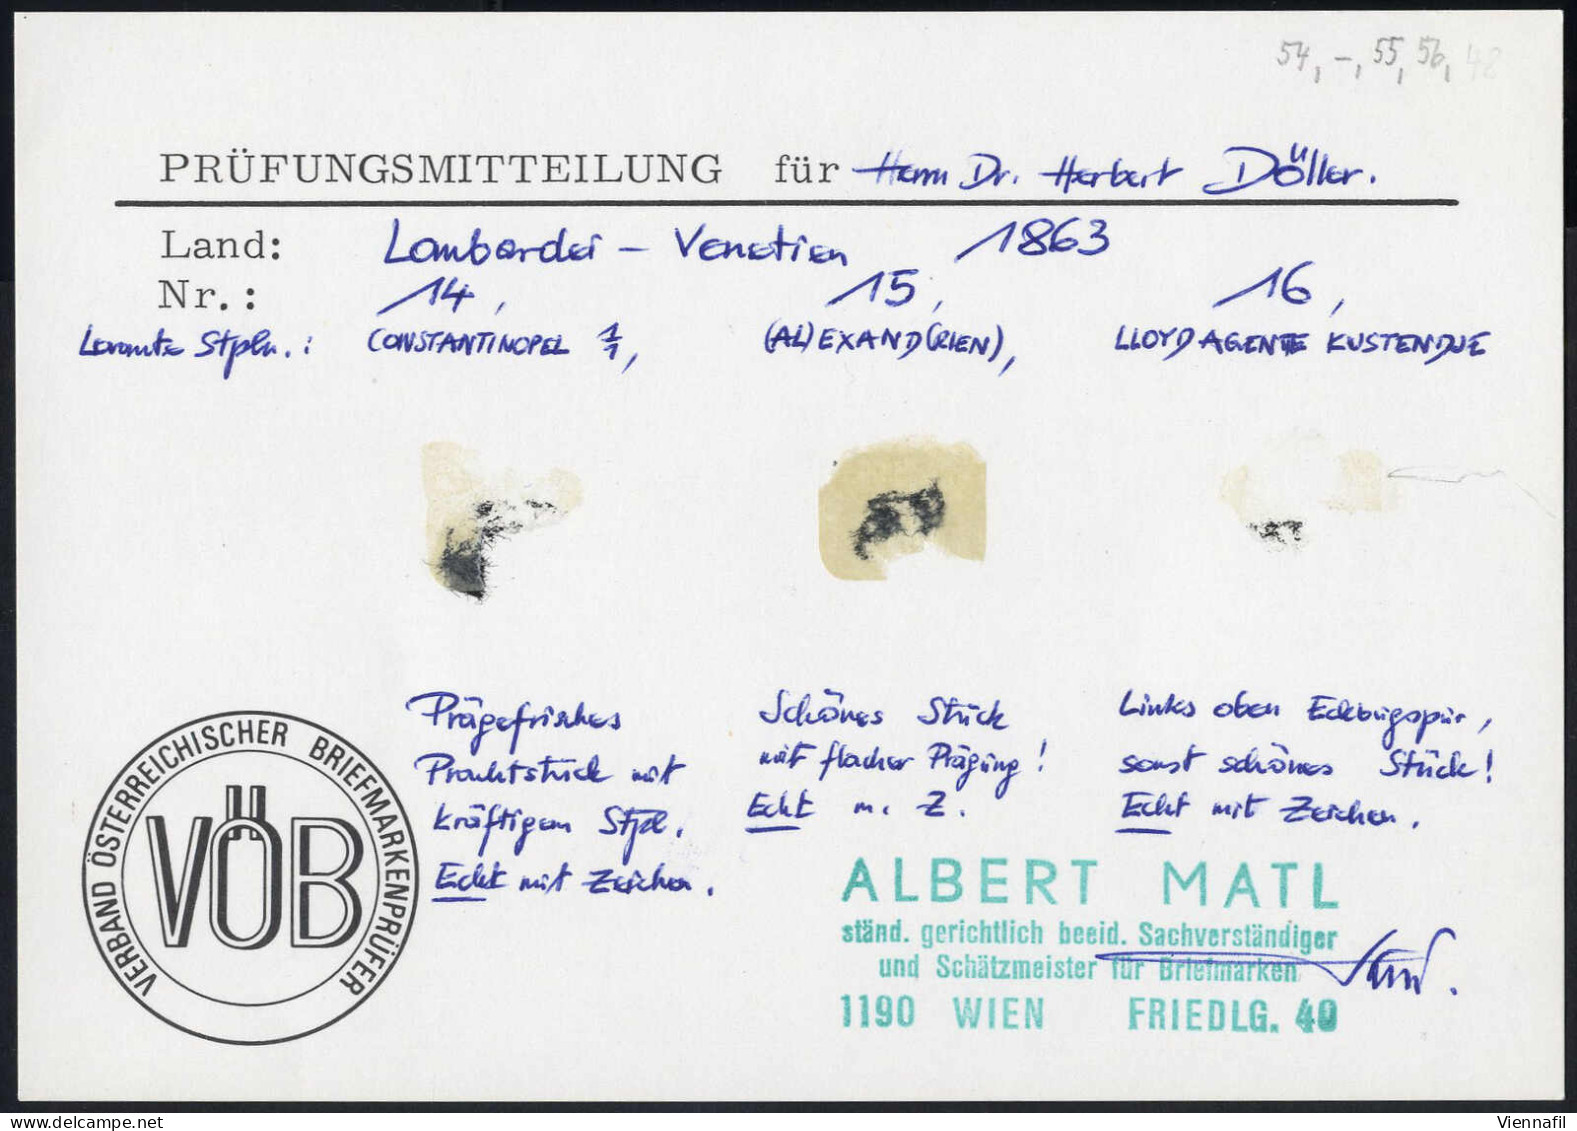 54, -, 55, 56, 48
PRÜFUNGSMITTEILUNG für Herrn Dr. Herbert Döller.
Land: Lombardei - Venetien 1863
Nr.: 14, 15, 16,
Levante Stpln.: CONSTANTINOPEL 1/1, (AL)EXAND(RIEN), LLOYDAGENTE KUSTENDJE
Prägefrisches
Prachtstück mit
kräftigem Stpl.
Echt mit Zeichen.
Schönes Stück
mit flacher Prägung!
Echt m. Z.
Links oben Eckbugspur,
sonst schönes Stück!
Echt mit Zeichen.
VERBAND ÖSTERREICHISCHER BRIEFMARKENPRÜFER
VÖB
ALBERT MATL
ständ. gerichtlich beeid. Sachverständiger
und Schätzmeister für Briefmarken
1190 WIEN FRIEDLG. 40
Viennafil